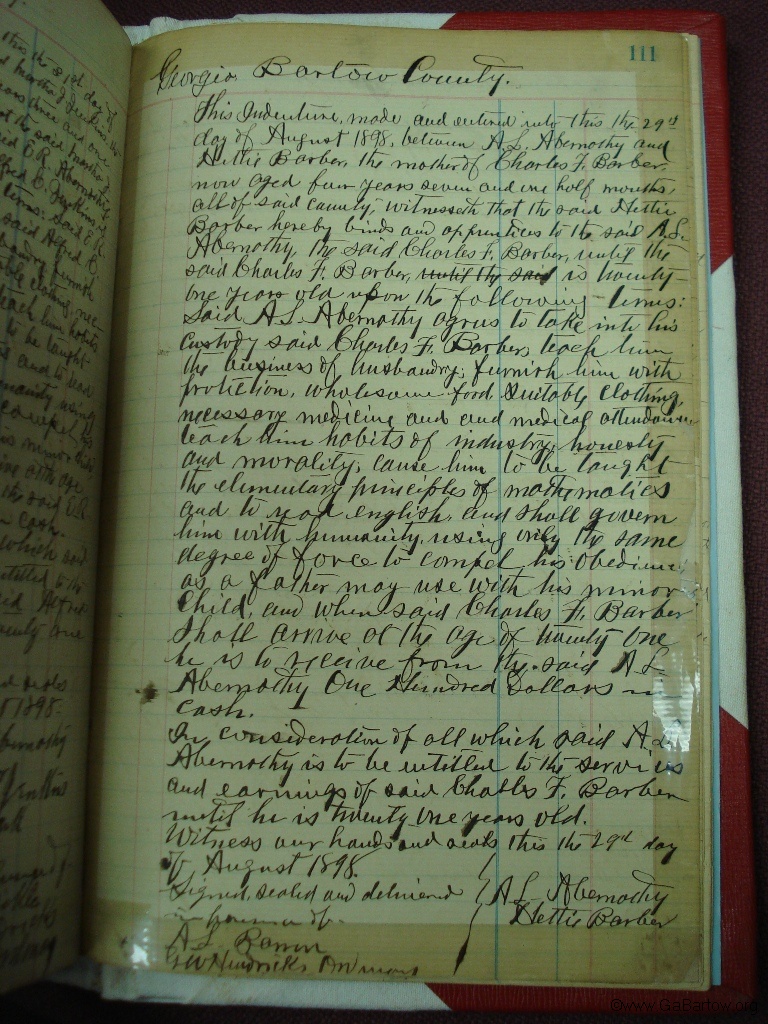 111
Georgia Bartow County.
This Indenture, made and entered into this the 29th
day of August 1898, between A.L. Abernathy and
Hettie Barber, the mother of Charles F. Barber,
now aged four years seven and one half months,
all of said county, witnesseth that the said Hettie
Barber hereby binds and apprentices to the said A.L.
Abernathy, the said Charles F. Barber, until the
said Charles F. Barber, until the said is twenty-
one years old upon the following terms:
Said A.L. Abernathy agrees to take into his
custody said Charles F. Barber, teach him
the business of husbandry, furnish him with
protection, wholesome food suitable clothing,
necessary medicine and and medical attendance
teach him habits of industry, honesty
and morality, cause him to be taught
the elementary principles of mathematics
and to read english, and shall govern
him with humanity, using only the same
degree of force to compel his obedience
as a father may use with his minor
child, and when said Charles F. Barber
shall arrive at the age of twenty one
he is to receive from the said A.L.
Abernathy One Hundred Dollars in
cash.
In consideration of all which said A.L.
Abernathy is to be entitled to the services
and earnings of said Charles F. Barber
until he is twenty one years old.
Witness our hands and seals this the 29th day
of August 1898.
Signed, sealed and delivered A L Abernathy
in presence of Hettie Barber
A L Barron
G W Hendricks Ordinary
©www.GaBartow.org